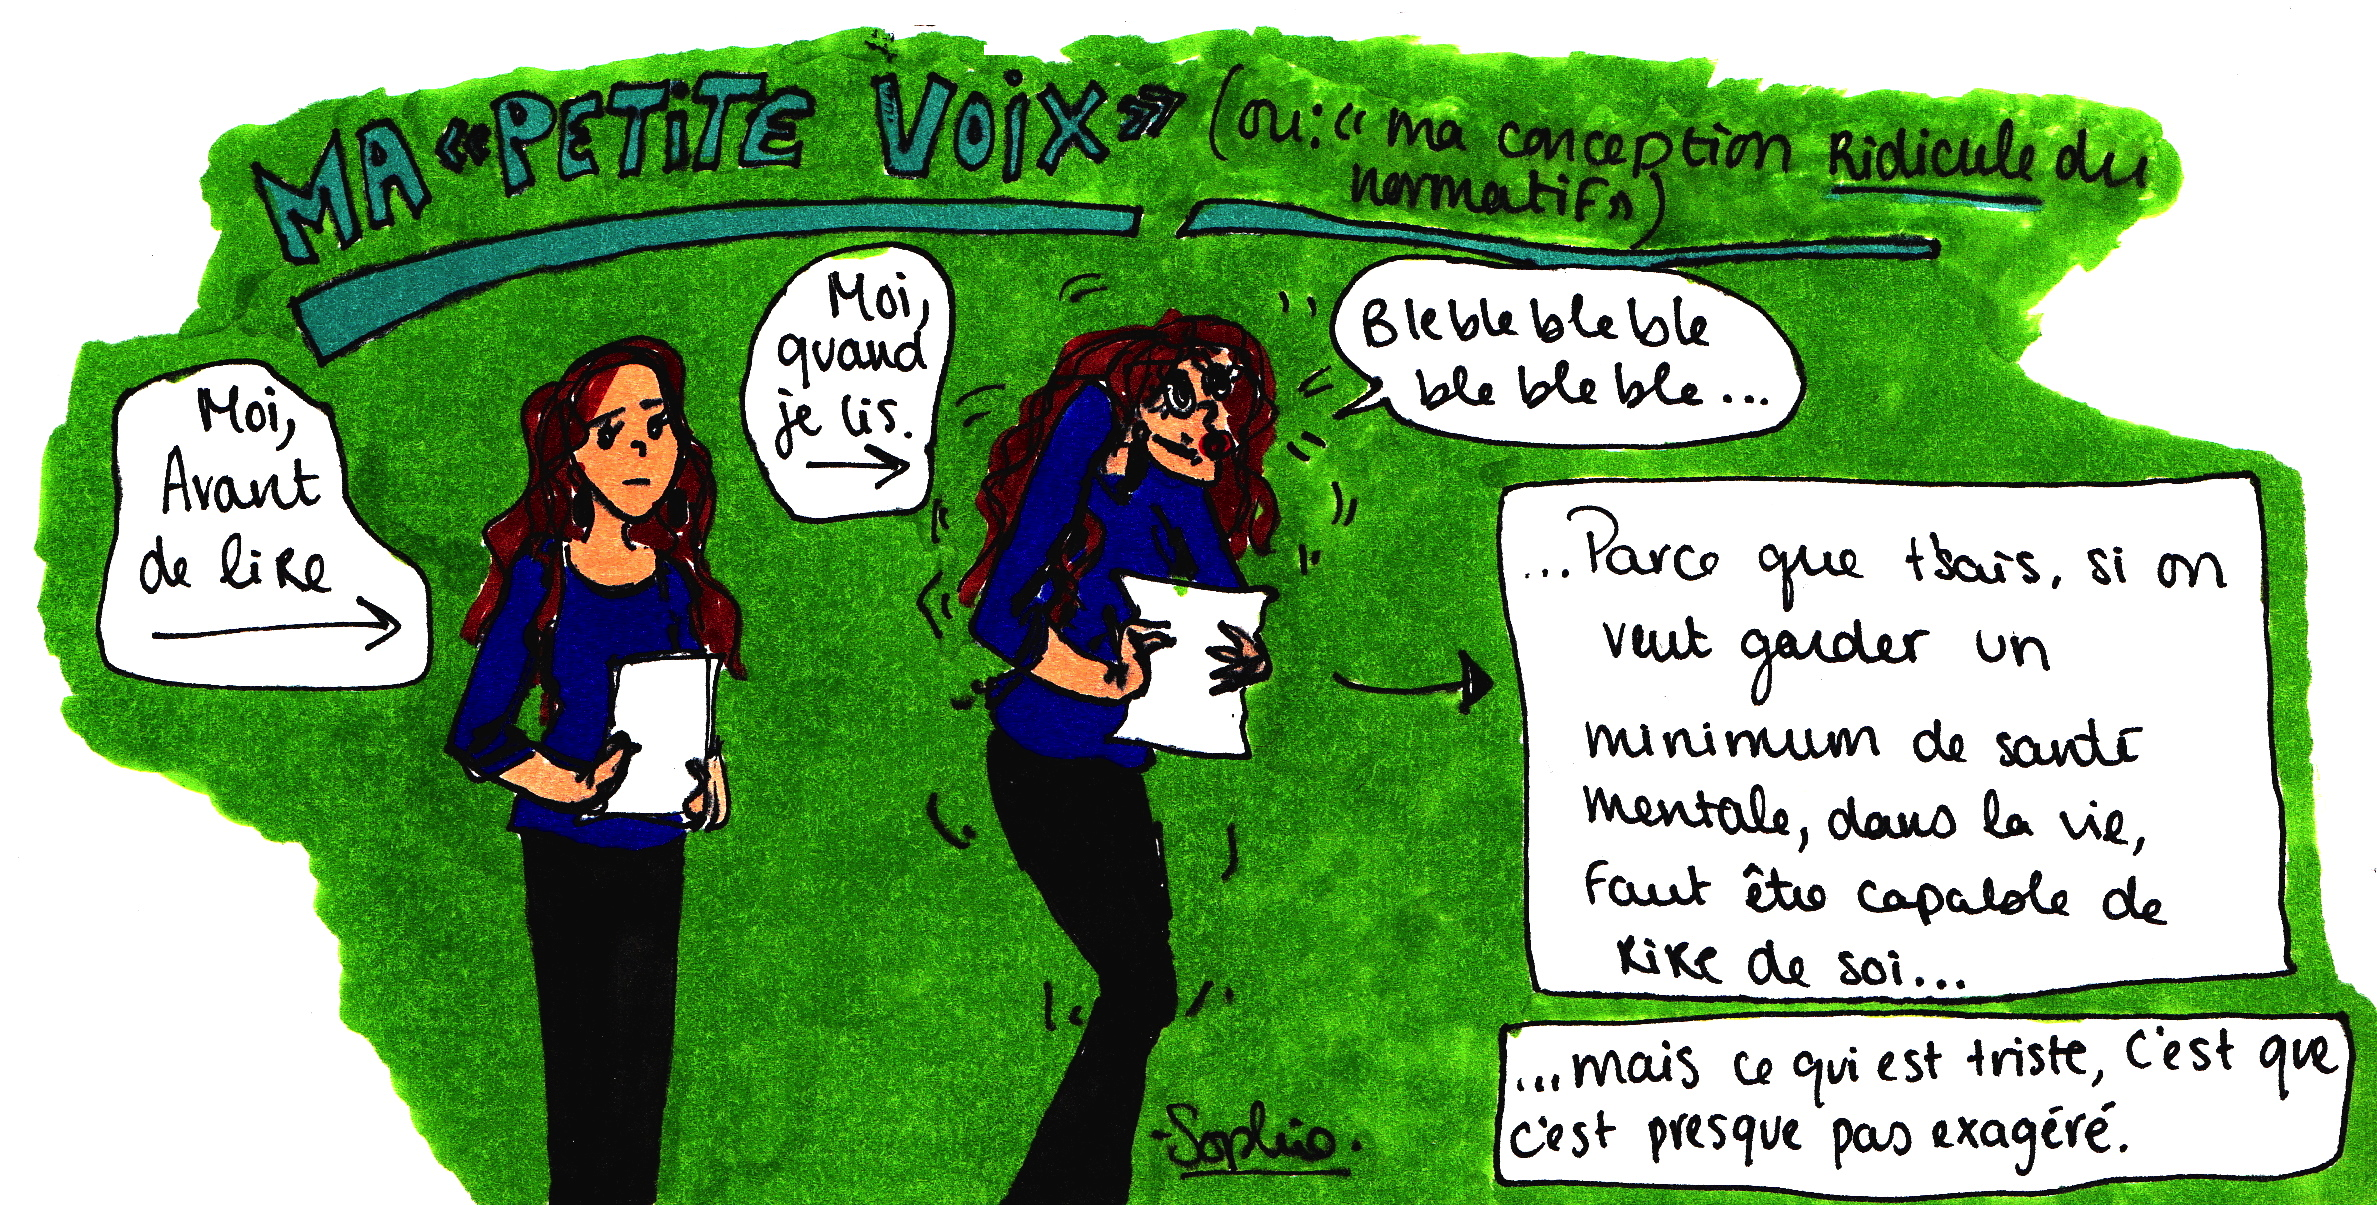 MA «PETITE VOIX» (ou: « ma conception Ridicule du
normatif»)
Moi,
Avant
de lire
Moi,
quand
je lis.
Bleblebleble
ble ble ble...
...Parce que t'sais, si on
veut garder un
minimum de santé
mentale, dans la vie,
Faut être capable de
RiRe de soi...
...mais ce qui est triste, c'est que
c'est presque pas exagéré.
-Sophie.